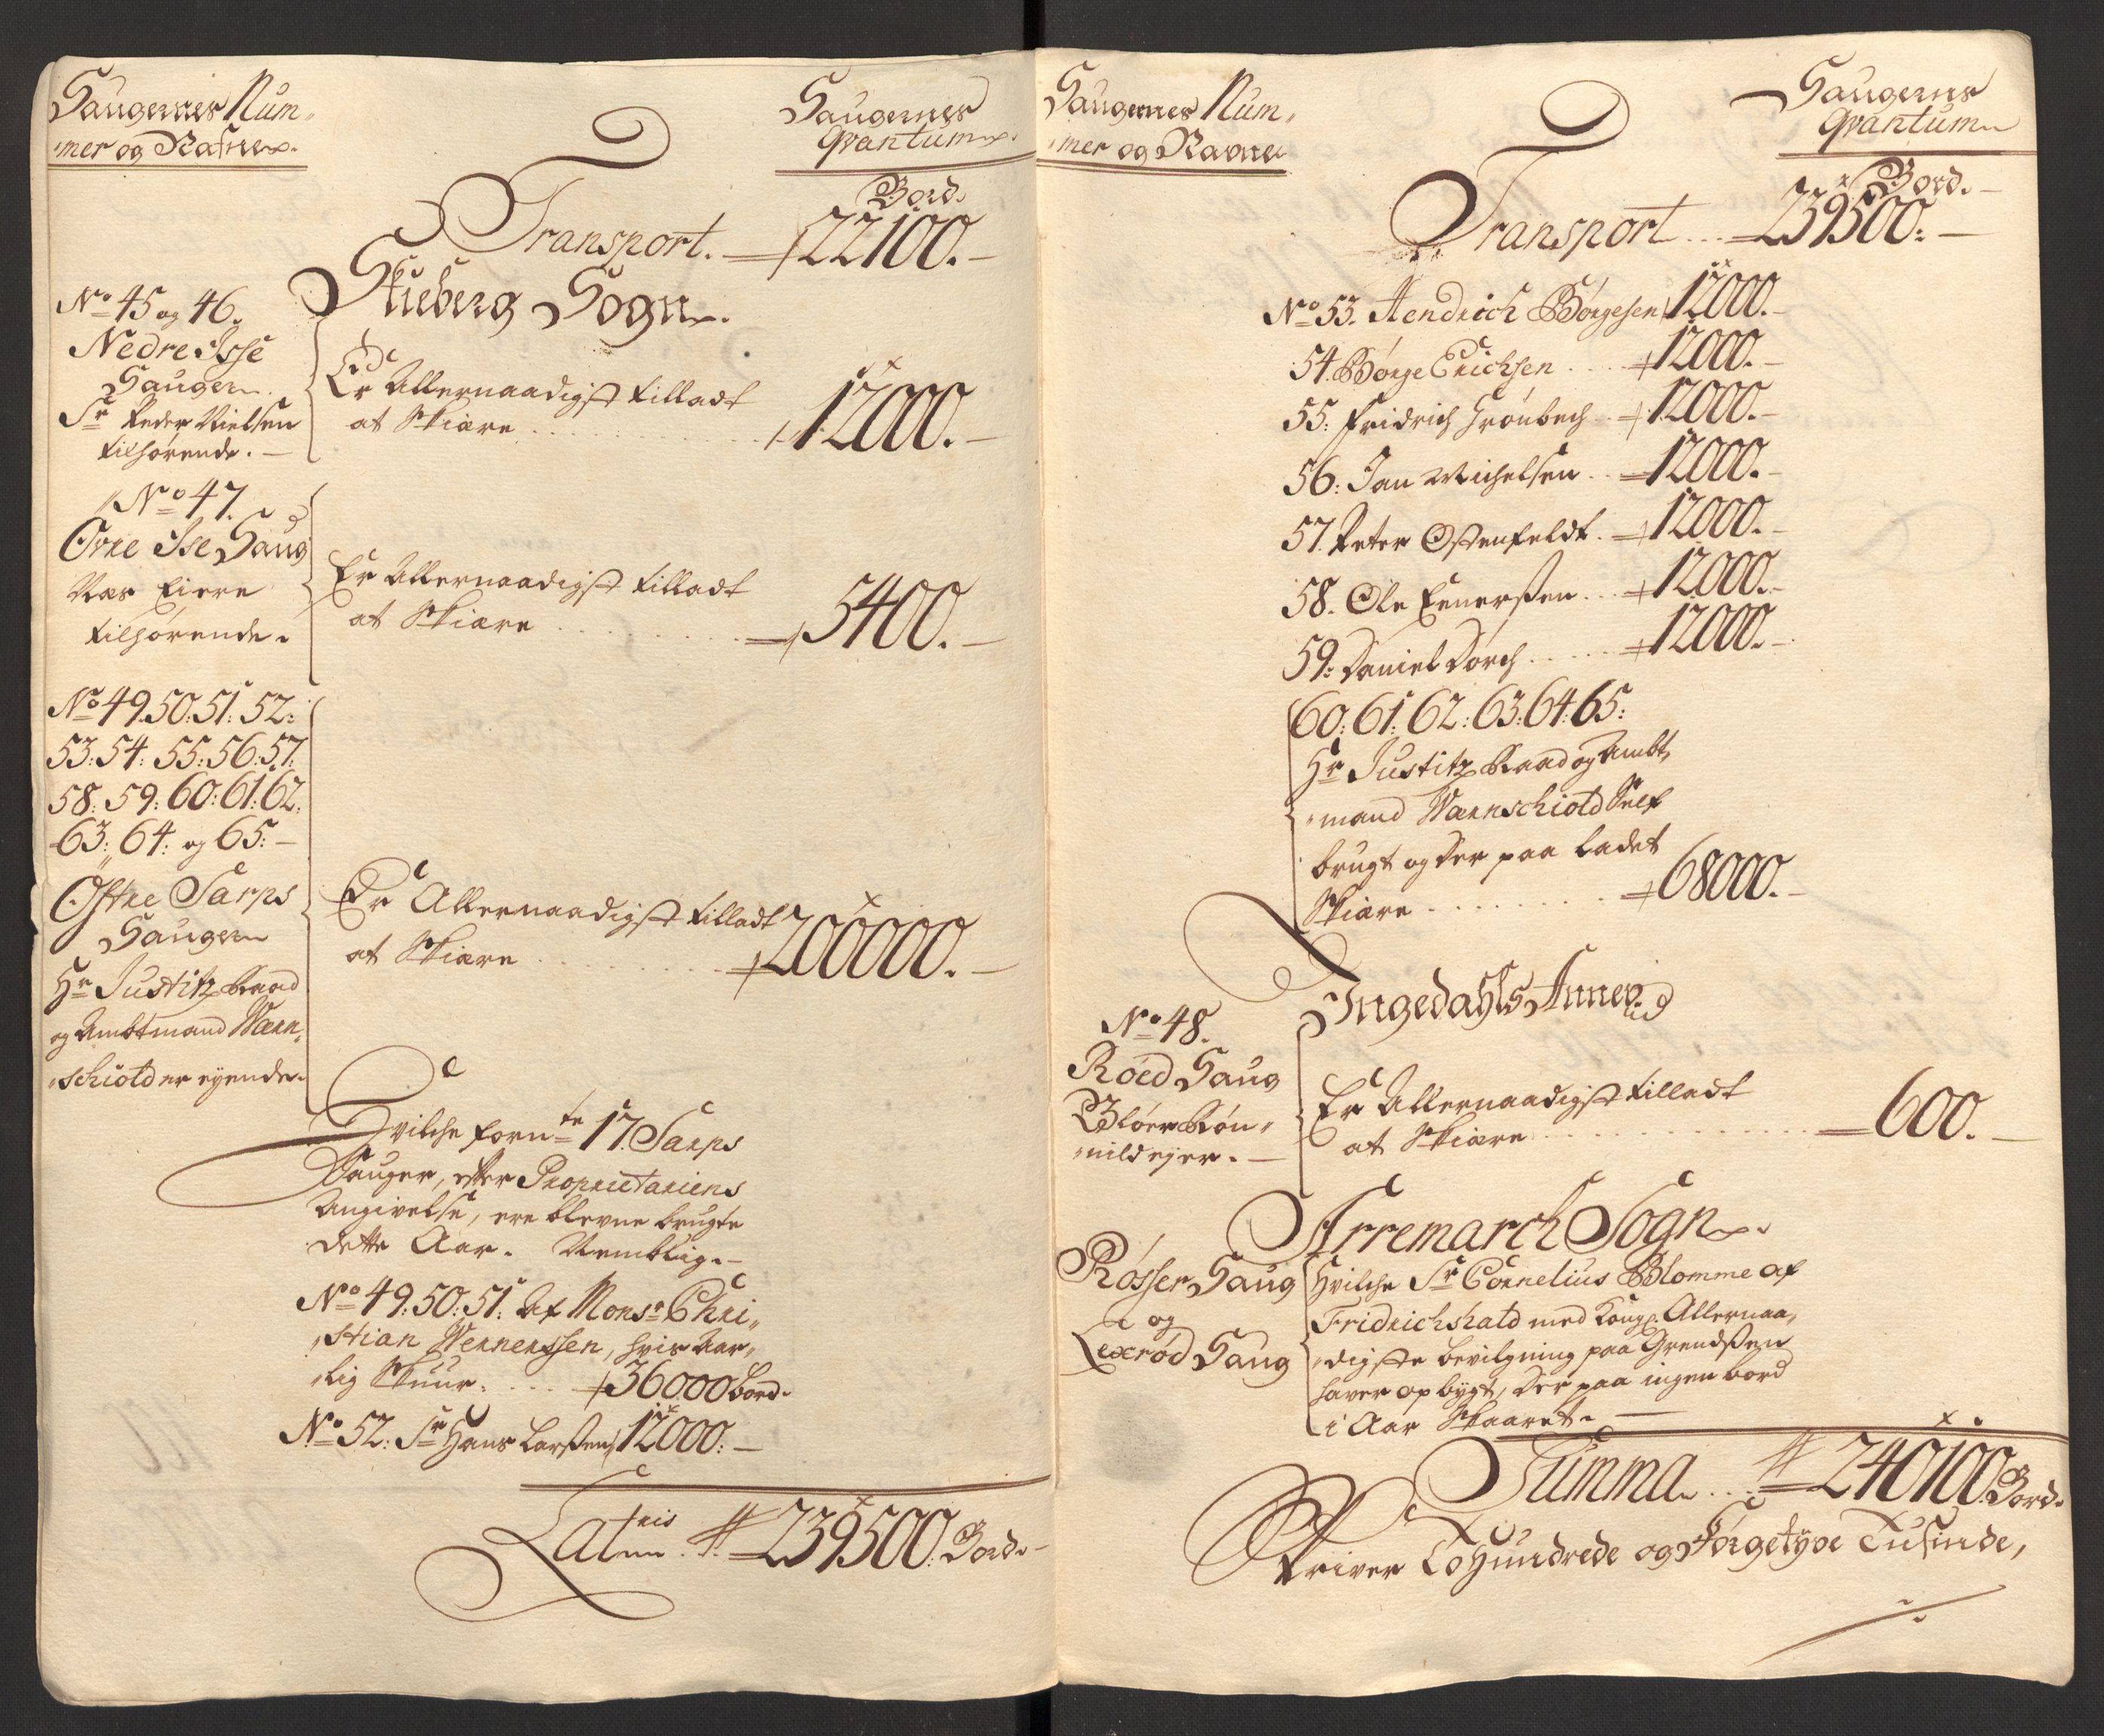 Saugernes Num-
mer og Nafne.
Saugernes
Qvantum.
Bord.
Transport. 22100.
Skieberg Sogn.
No 45 og 46.
Nedre Isse
Sauger
Sr Peder Nielsen
tilhørende.
Er Allernaadigst tilladt
at Skiære 12000.
No 47.
Øvre Ise Saug
Næs Eiere
tilhørende.
Er Allernaadigst tilladt
at Skiære 5400.
No 49. 50: 51: 52:
53: 54: 55: 56: 57:
58: 59: 60: 61: 62:
63: 64: og 65:
Østre Sarps
Sauger
Hr Justitz Raad
og Ambtmand Wærn-
schiold er eyende.
Er Allernaadigst tilladt
at Skiære 200000.
Hvilche fornte 17. Sarps
Sauger, efter Proprietariens
Angivelse, ere blevne brugte
dette Aar. Nemblig.
No 49: 50: 51: Af Monsr Chri-
stian Wernerssen, hvis Aar-
lig Skuur. 36000 Bord.
No 52: Sr Hans Larssen 12000:
Lateris 239500. Bord.
Saugernes Num-
mer og Navne
Saugerns
Qvantum
Bord.
Transport 239500:
No 53. Hendrich Børgesen 12000.
54. Børge Erichsen 12000.
55: Fridrich Grønbech 12000.
56: Jan Michelsen 12000.
57. Peter Ostenfeldt. 12000.
58. Ole Enersen 12000.
59: Daniel Dorch 12000.
60: 61: 62: 63: 64: 65:
Hr Justitz Raad og Ambt-
mand Wærnschiold Self
brugt og der paa ladet
Skiære 68000.
Ingedahls Annex
No 48.
Røed Saug
Røn-
nild ejer.
Er Allernaadigst tilladt
at Skiære 600.
Arremarch Sogn.
Røsser Saug
og
Lexrød Saug
Hvilche Sr Cornelius Blomme af
Fridrichshald med Kongl. Allernaa-
digste bevilgning paa Grendsen
haver opbygt, der paa ingen bord
i Aar Skaaret.
Summa 240100. Bord.
Skriver To Hundrede og Førgetyve Tusinde,